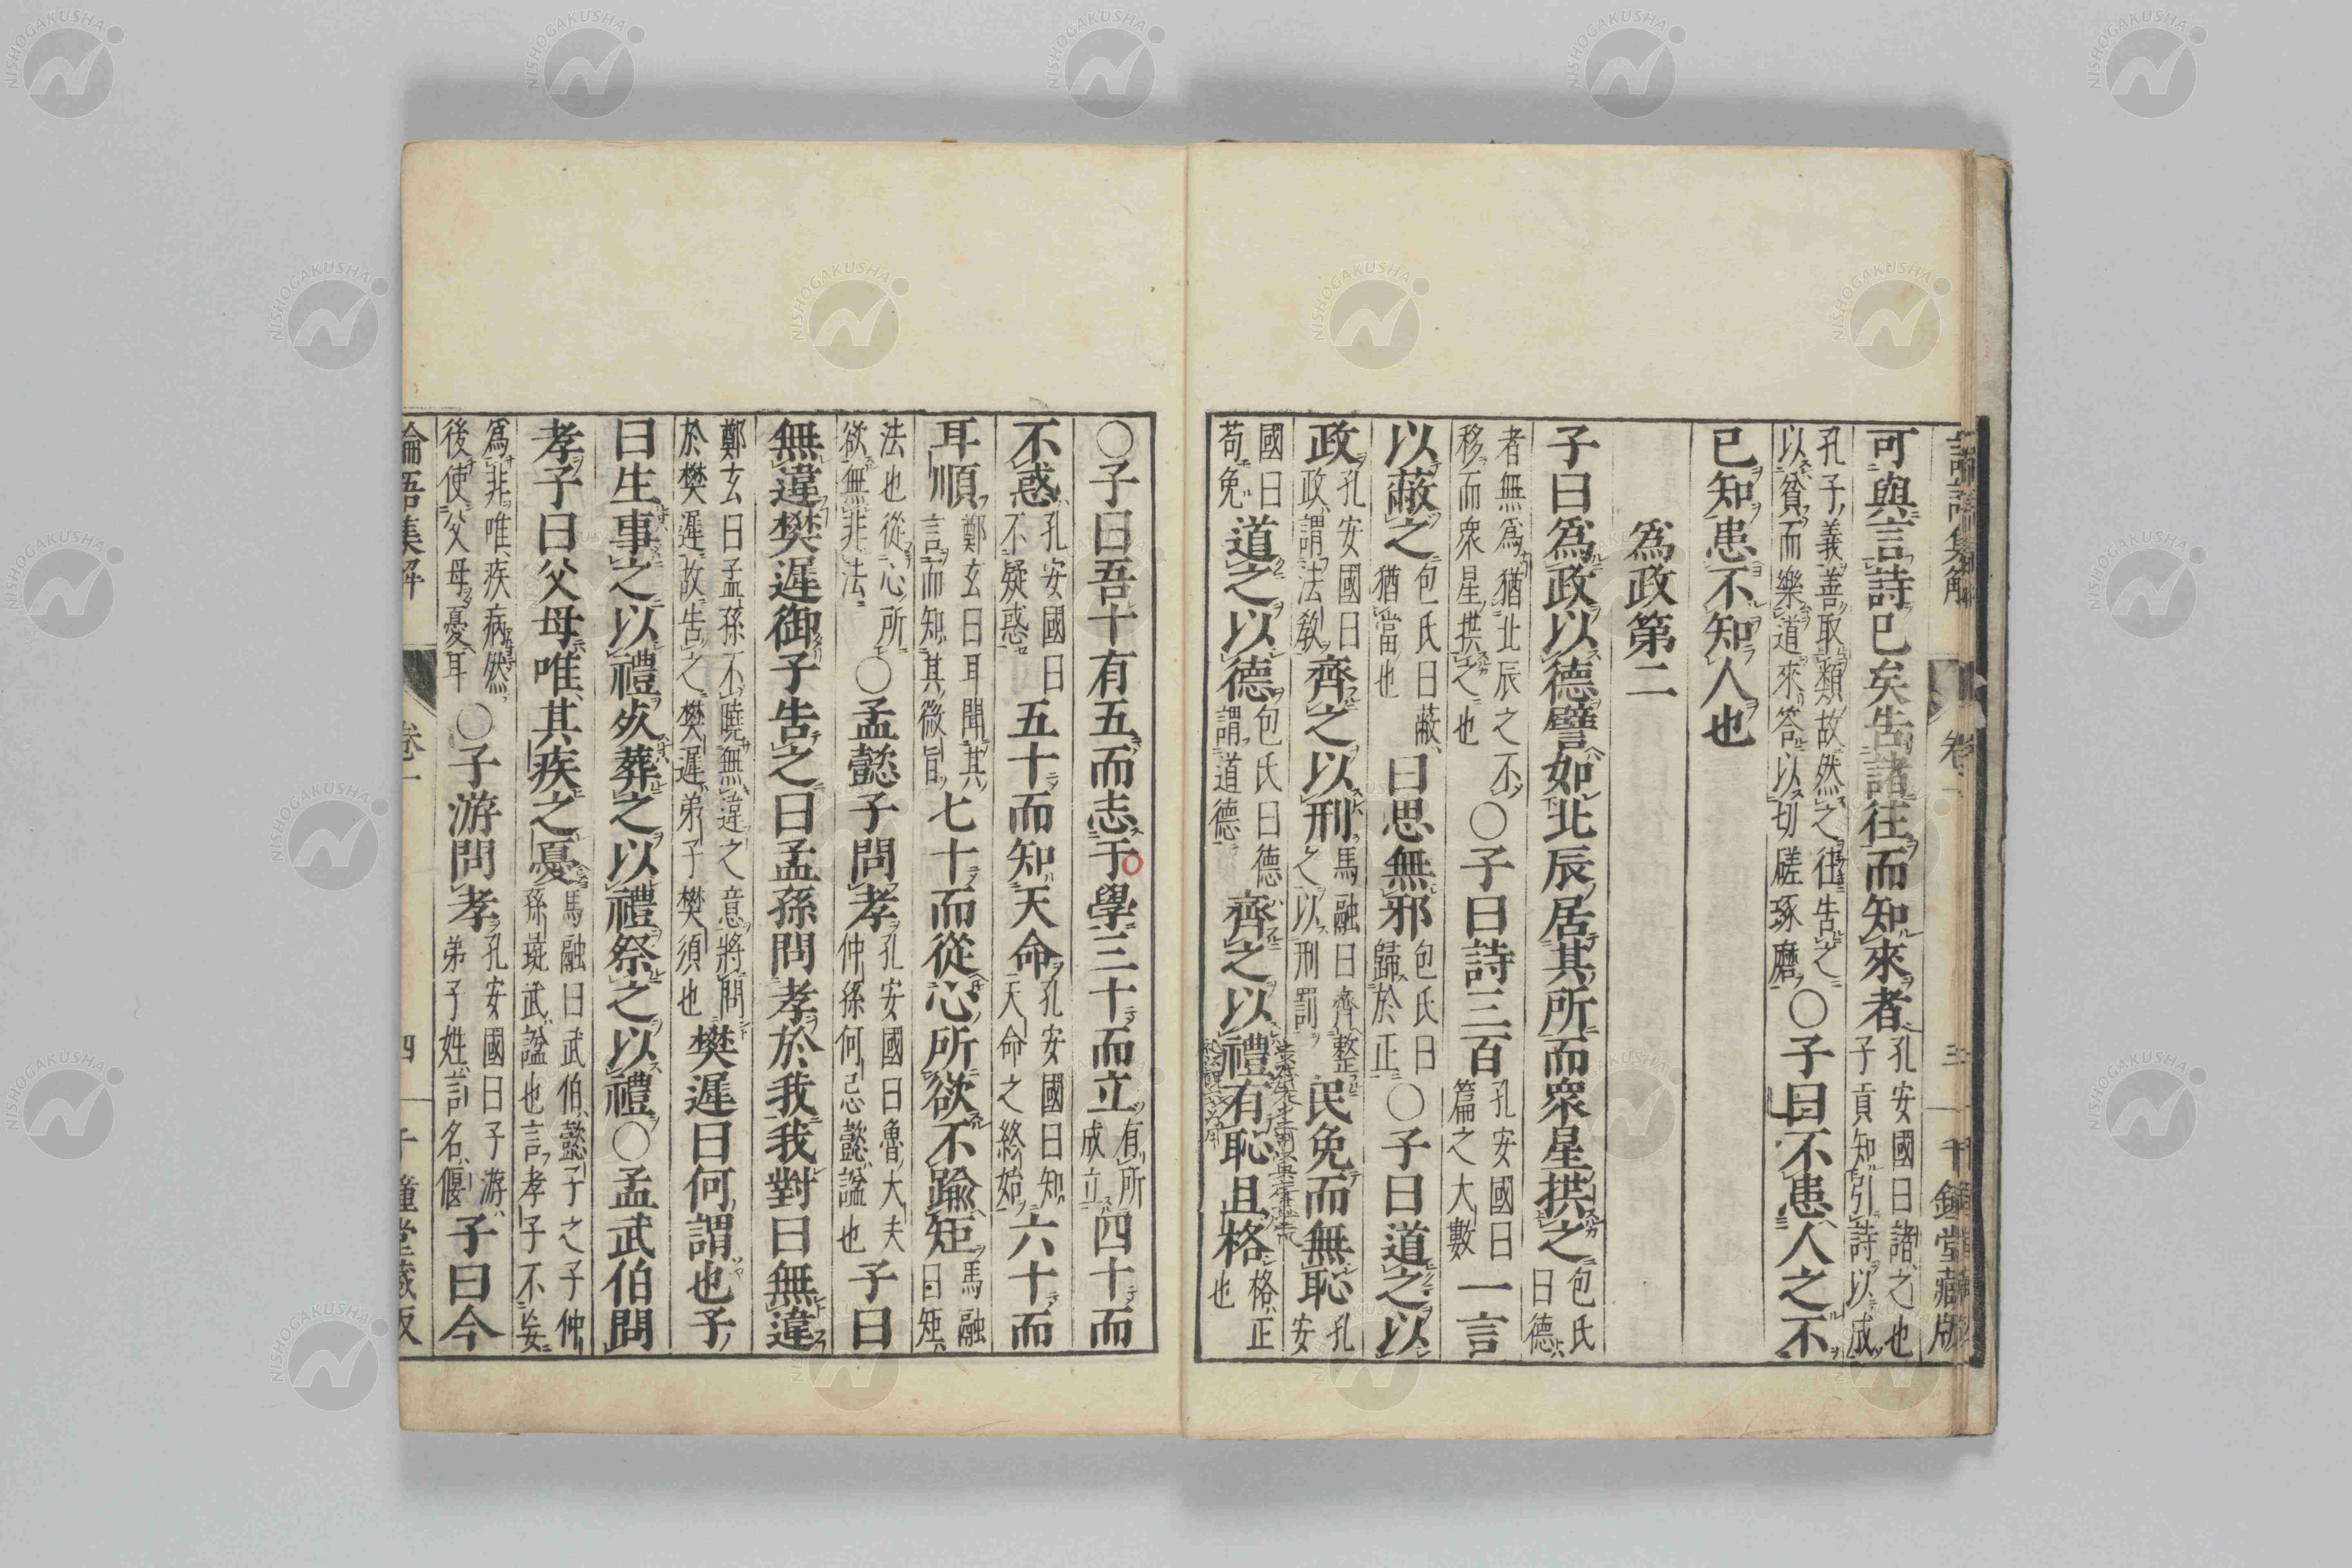 論語集解 卷一 三 千鍾堂藏版
可與言詩已矣告諸往而知來者孔安國曰諸之也子貢知引詩以成
孔子義善取類故然之往告之以貧而樂道來答以切磋琢磨○子曰不患人之不
已知患不知人也
爲政第二
子曰爲政以德譬如北辰居其所而衆星拱之包氏曰德
者無爲猶北辰之不移而衆星拱之也○子曰詩三百孔安國曰篇之大數一言
以蔽之包氏曰蔽猶當也曰思無邪包氏曰歸於正○子曰道之以
政孔安國曰政謂法敎齊之以刑馬融曰齊整之以刑罰民免而無恥孔安
國曰苟免道之以德包氏曰德謂道德齊之以禮有恥且格格正也
○子曰吾十有五而志于學三十而立有所成立四十而
不惑孔安國曰不疑惑五十而知天命孔安國曰知天命之終始六十而
耳順鄭玄曰耳聞其言而知其微旨七十而從心所欲不踰矩馬融曰矩
法也從心所欲無非法○孟懿子問孝孔安國曰魯大夫仲孫何忌懿諡也子曰
無違樊遲御子告之曰孟孫問孝於我我對曰無違
鄭玄曰孟孫不曉無違之意將問於樊遲故告之樊遲弟子樊須也樊遲曰何謂也子
曰生事之以禮死葬之以禮祭之以禮○孟武伯問
孝子曰父母唯其疾之憂馬融曰武伯懿子之子仲孫彘武諡也言孝子不妄
爲非唯疾病然後使父母憂耳○子游問孝孔安國曰子游弟子姓言名偃子曰今
論語集解 卷一 四 千鍾堂藏版
NISHOGAKUSHA